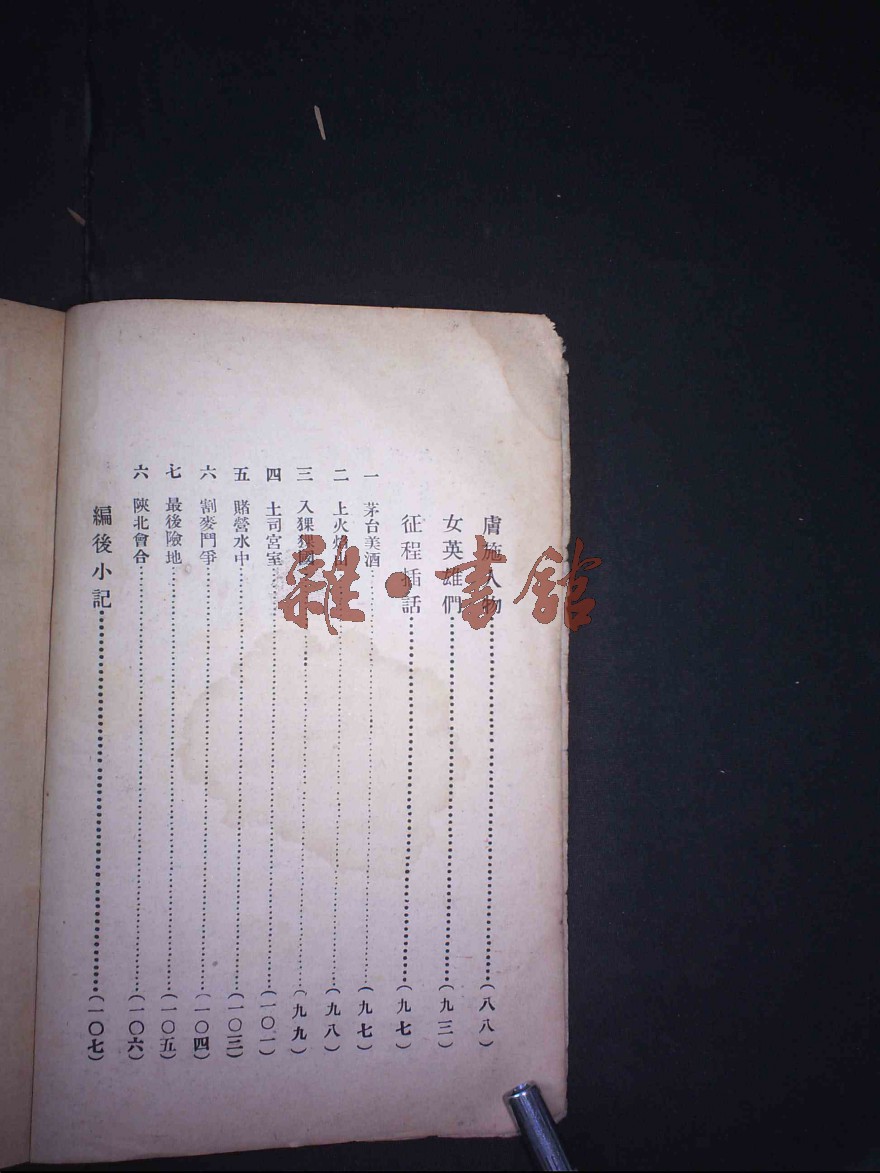 膚施人物(八八)
女英雄們(九三)
征程插話(九七)
一 茅台美酒(九七)
二 上火焰山(九八)
三 入猓猓國(九九)
四 土司宮室(一〇一)
五 賭營水中(一〇三)
六 割麥鬥爭(一〇四)
七 最後險地(一〇五)
六 陝北會合(一〇六)
編後小記(一〇七)
雜·書館